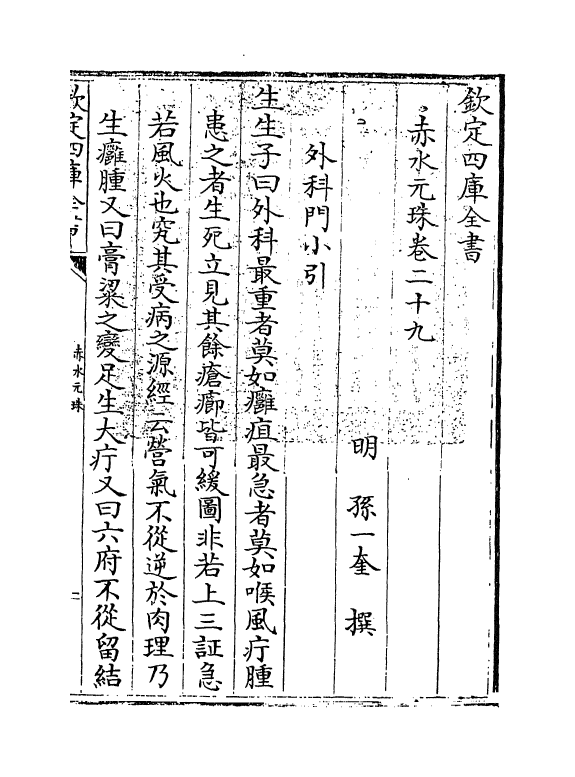 欽定四庫全書
赤水元珠卷二十九
明 孫一奎 撰
外科門小引
生生子曰外科最重者莫如癰疽最急者莫如喉風疔腫
患之者生死立見其餘瘡癤皆可緩圖非若上三証急
若風火也究其受病之源經云營氣不從逆於肉理乃
生癰腫又曰膏粱之變足生大疔又曰六府不從留結
欽定四庫全書
赤水元珠